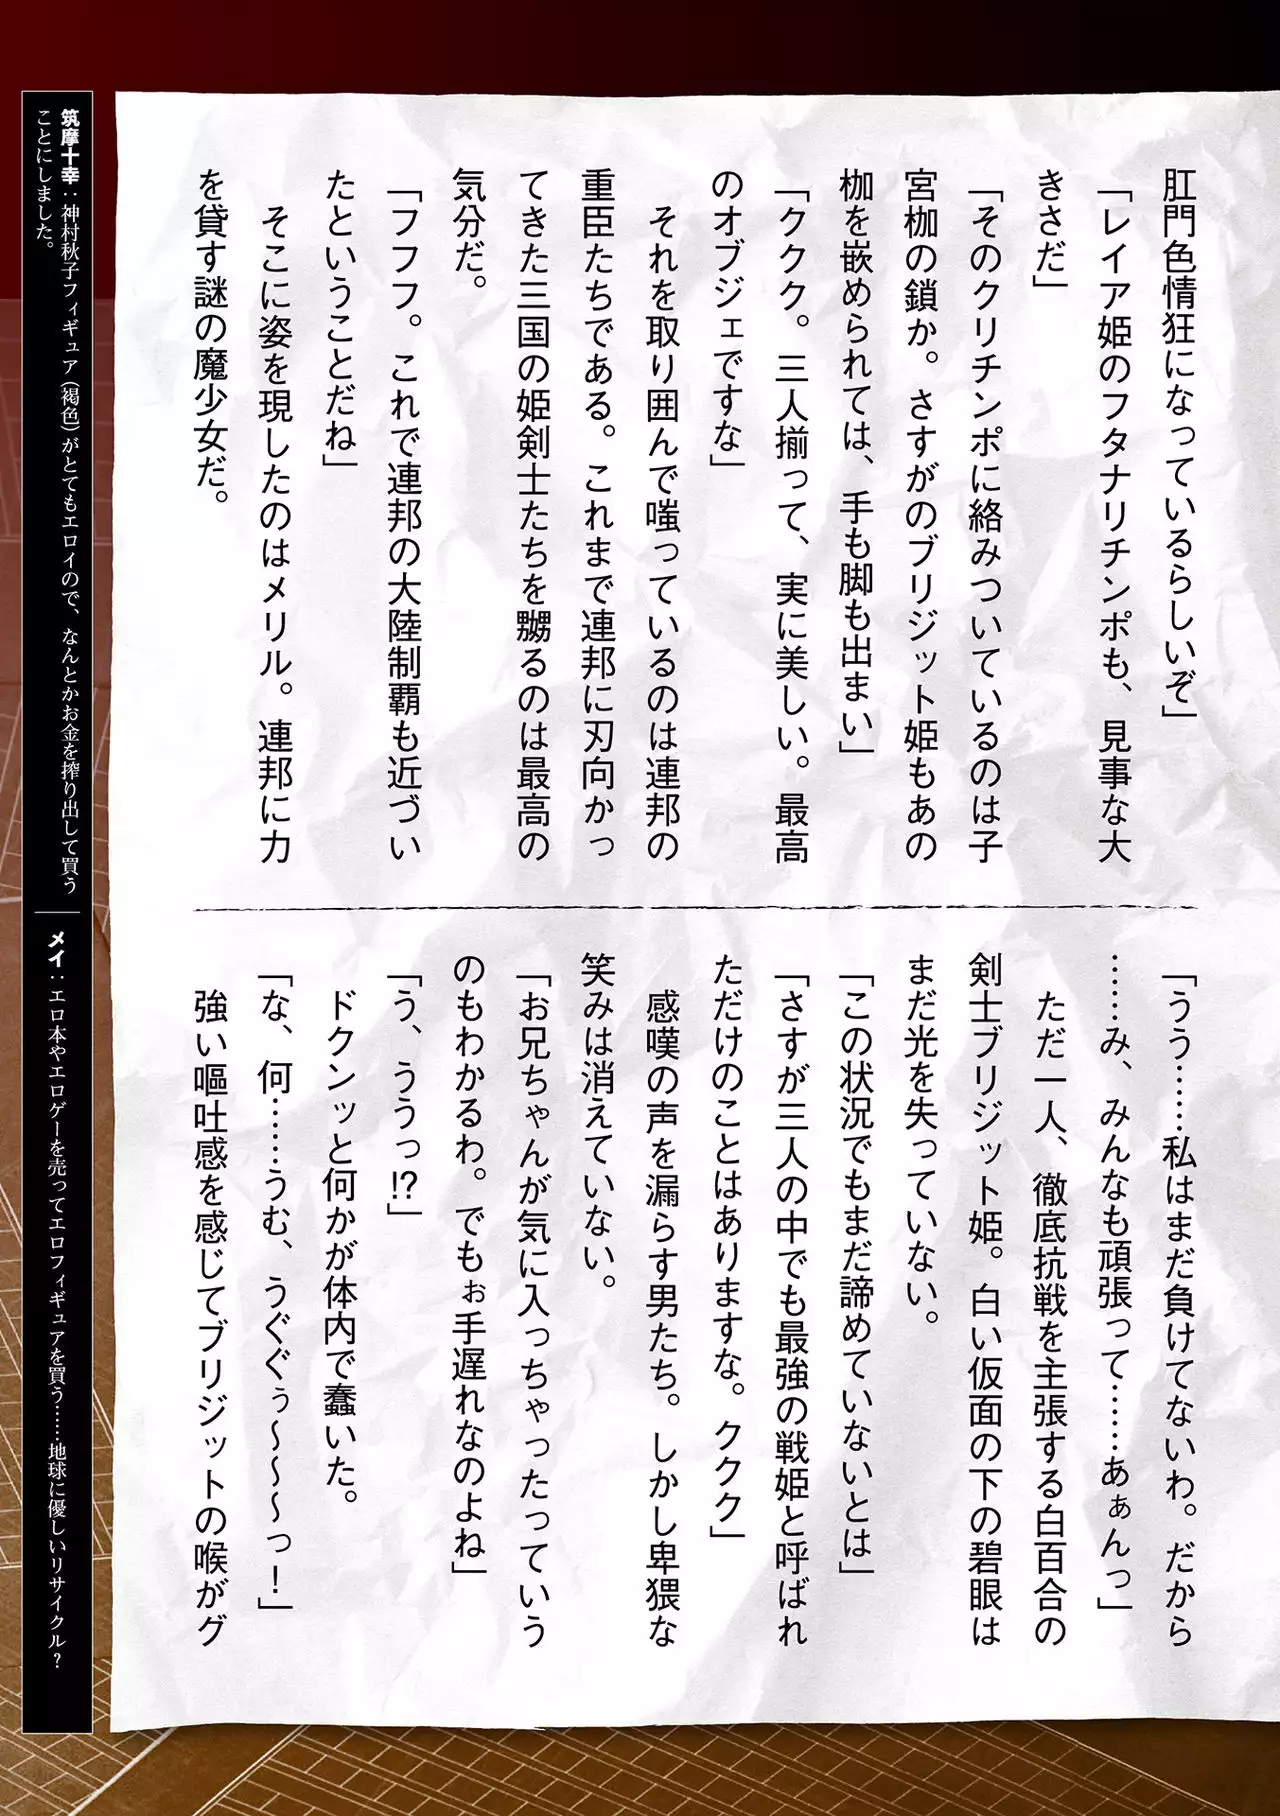 肛門色情狂になっているらしいぞ」
「レイア姫のフタナリチンポも、見事な大
きさだ」
「そのクリチンポに絡みついているのは子
宮枷の鎖か。さすがのブリジット姫もあの
枷を嵌められては、手も脚も出まい」
「ククク。三人揃って、実に美しい。最高
のオブジェですな」
それを取り囲んで嗤っているのは連邦の
重臣たちである。これまで連邦に刃向かっ
てきた三国の姫剣士たちを嬲るのは最高の
気分だ。
「フフフ。これで連邦の大陸制覇も近づい
たということだね」
そこに姿を現したのはメリル。連邦に力
を貸す謎の魔少女だ。
「うう……私はまだ負けてないわ。だから
……み、みんなも頑張って……あぁんっ」
ただ一人、徹底抗戦を主張する白百合の
剣士ブリジット姫。白い仮面の下の碧眼は
まだ光を失っていない。
「この状況でもまだ諦めていないとは」
「さすが三人の中でも最強の戦姫と呼ばれ
ただけのことはありますな。ククク」
感嘆の声を漏らす男たち。しかし卑猥な
笑みは消えていない。
「お兄ちゃんが気に入っちゃったっていう
のもわかるわ。でもぉ手遅れなのよね」
「う、ううっ!?」
ドクンッと何かが体内で蠢いた。
「な、何……うむ、うぐぐぅ～～～っ！」
強い嘔吐感を感じてブリジットの喉がグ
筑摩十幸：神村秋子フィギュア（褐色）がとてもエロイので、なんとかお金を搾り出して買う
ことにしました。
メイ：エロ本やエロゲーを売ってエロフィギュアを買う……地球に優しいリサイクル？